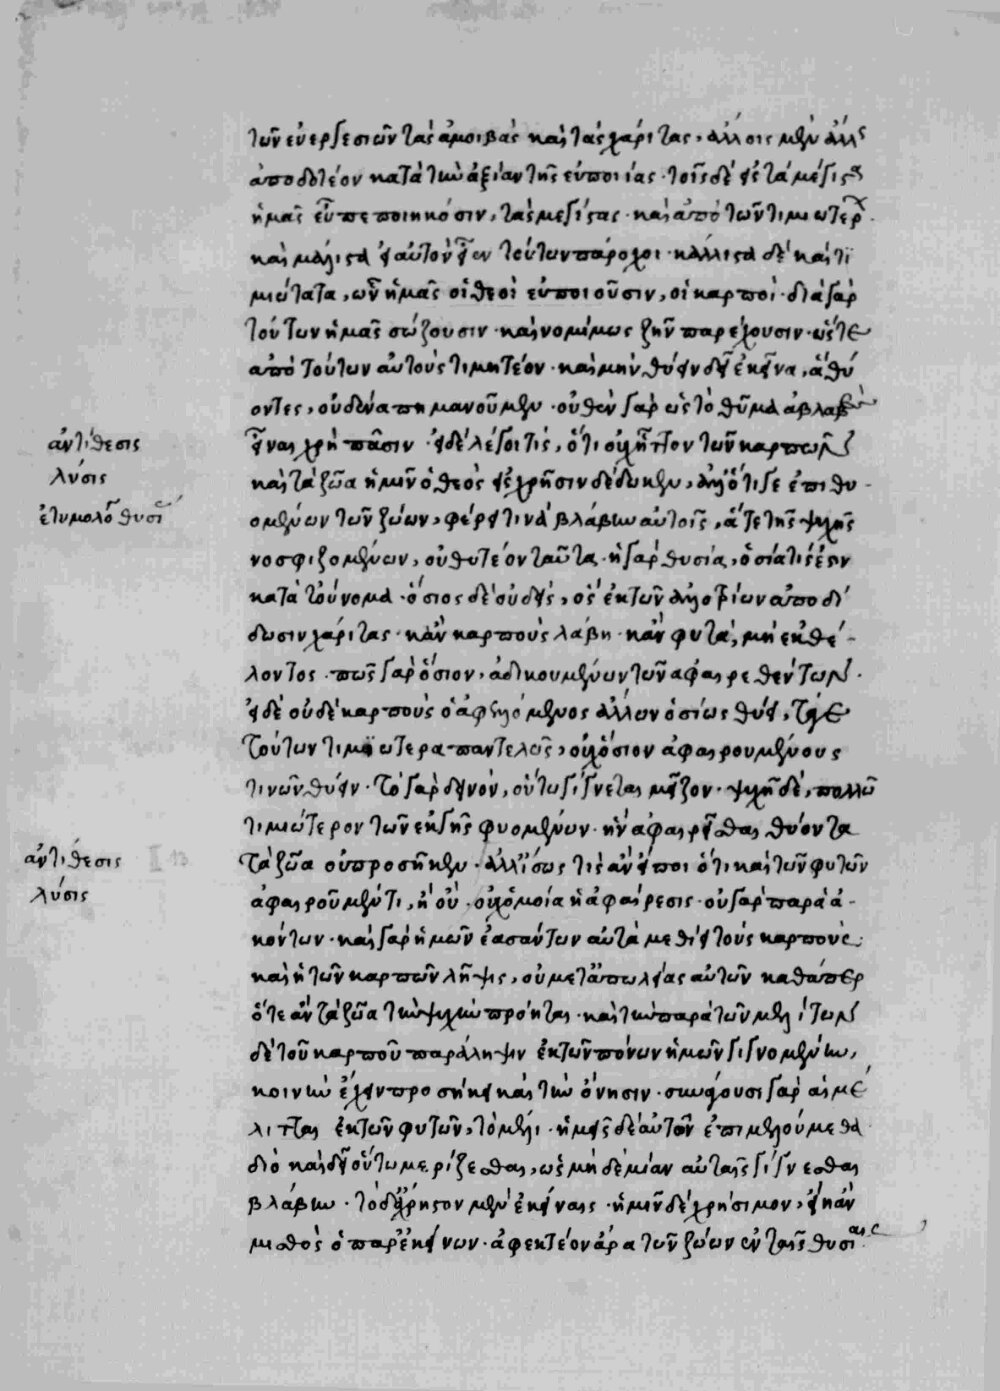 τῶν εὐεργεσιῶν τὰς ἀμοιβὰς καὶ τὰς χάριτας, ἄλλοις μὲν ἄλλας
ἀποδοτέον κατὰ τὴν ἀξίαν τῆς εὐποιίας· τοῖς δὲ εἰς τὰ μέγιστα
ἡμᾶς εὖ πεποιηκόσιν, τὰς μεγίστας· καὶ ἀπὸ τῶν τιμιωτέρων·
καὶ μάλιστα εἰ αὐτοὶ εἶεν τούτων πάροχοι· κάλλιστα δὲ καὶ τι
μιώτατα, ὧν ἡμᾶς οἱ θεοὶ εὐποιοῦσιν, οἱ καρποί· διὰ γὰρ
τούτων ἡμᾶς σώζουσιν· καὶ νομίμως ζῆν παρέχουσιν· ὥστε
ἀπὸ τούτων αὐτοὺς τιμητέον· καὶ μὴν θύειν δεῖ ἐκεῖνα, ἃ θύ
οντες, οὐδένα πημανοῦμεν· οὐθὲν γὰρ ὡς τὸ θῦμα ἀβλαβὲς
ἀντίθεσις εἶναι χρὴ πᾶσιν· εἰ δὲ λέγοι τίς, ὅτι οὐχ ἧττον τῶν καρπῶν
λύσις καὶ τὰ ζῶα ἡμῖν ὁ θεὸς εἰς χρῆσιν δέδωκεν, ἀλλ' ὅτι γε ἐπιθυ-
ἐτυμολο θυσί ομένων τῶν ζώων, φέρει τινὰ βλάβην αὐτοῖς, ἅτε τῆς ψυχῆς
νοσφιζομένων, οὐ θυτέον ταῦτα· ἡ γὰρ θυσία, ὁσία τίς ἐστιν
κατὰ τοὔνομα· ὅσιος δὲ οὐδεὶς, ὃς ἐκ τῶν ἀλλοτρίων ἀποδί
δωσιν χάριτας· κἂν καρποὺς λάβη· κἂν φυτὰ, μὴ ἐκ θέ-
λοντος· πῶς γὰρ ὅσιον, ἀδικουμένων τῶν ἀφαιρεθέντων·
εἰ δὲ οὐδὲ καρποὺς ὁ ἁψάμενος ἄλλων ὁσίως θύει, τά γε
τούτων τιμιώτερα παντελῶς, οὐχ ὅσιον ἀφαιρουμένους
τινῶν θύειν· τὸ γὰρ δεινὸν, οὕτω γίγνεται μεῖζον· ψυχὴ δὲ, πολλῶ
τιμιώτερον τῶν ἐκ γῆς φυομένων· ἣν ἀφαιρεῖσθαι θύοντα
ἀντίθεσις τὰ ζῶα οὐ προσῆκεν· ἀλλ' ἴσως τὶς ἂν εἴποι ὅτι καὶ τῶν φυτῶν
λύσις ἀφαιροῦμέν τι, ἢ οὔ· οὐχ ὁμοία ἡ ἀφαίρεσις· οὐ γὰρ παρὰ ἀ-
κόντων· καὶ γὰρ ἡμῶν ἐασάντων αὐτὰ μεθίει τοὺς καρπούς·
καὶ ἡ τῶν καρπῶν λῆψις, οὐ μετ' ἀπωλείας αὐτῶν καθάπερ
ὅτε ἂν τὰ ζῶα τὴν ψυχὴν πρόηται· καὶ τὴν παρὰ τῶν μελιττῶν
δὲ τοῦ καρποῦ παράληψιν ἐκ τῶν πόνων ἡμῶν γιγνομένην,
κοινὴν ἔχειν προσήκει καὶ τὴν ὄνησιν· συνάγουσι γὰρ αἱ μέ
λιτται ἐκ τῶν φυτῶν, τὸ μέλι· ἡμεῖς δὲ αὐτῶν ἐπιμελούμεθα·
διὸ καὶ δεῖ οὕτω μερίζεσθαι, ὡς μηδεμίαν αὐταῖς γίγνεσθαι
βλάβην· τὸ δ' ἄχρηστον μὲν ἐκείναις· ἡμῖν δὲ χρήσιμον, εἴη ἂν
μισθὸς ὁ παρ' ἐκείνων· ἀφεκτέον ἄρα τῶν ζώων ἐν ταῖς θυσίαις